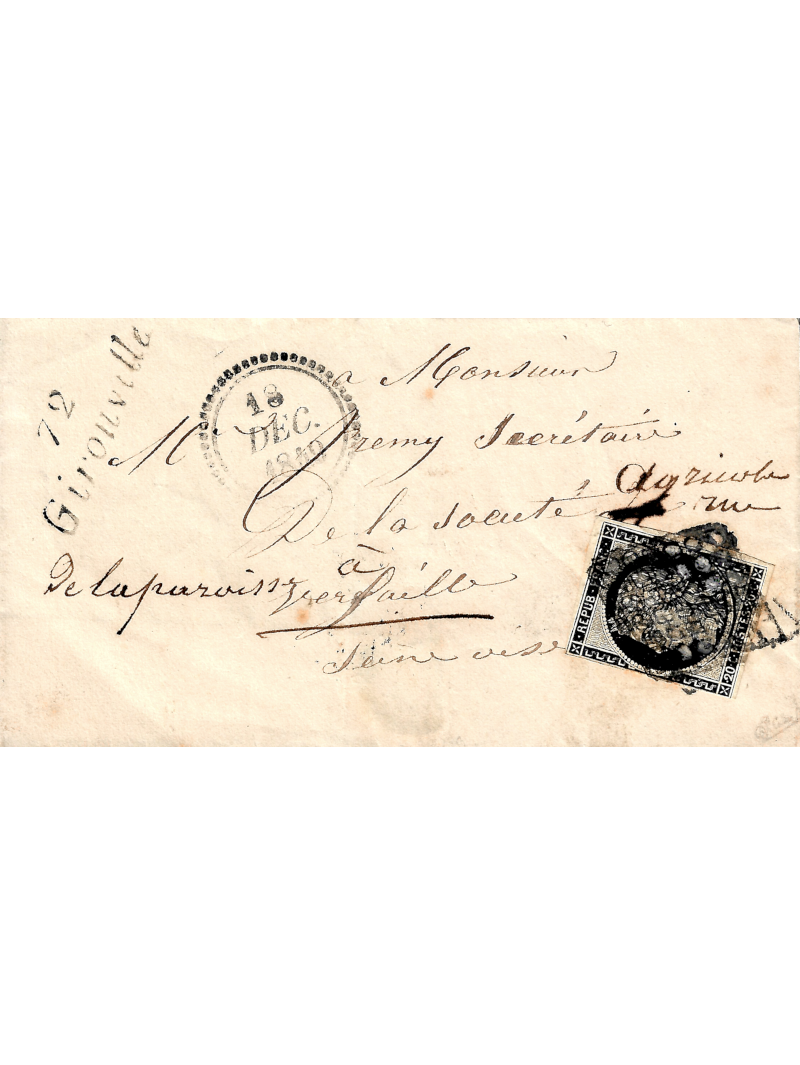 72
Girouville
18
DEC.
1849
a Monsieur
M Fremy Secrétaire
De la société agricole
rue
De la paroisse
à
Versaille
Seine oise
REPUB
20